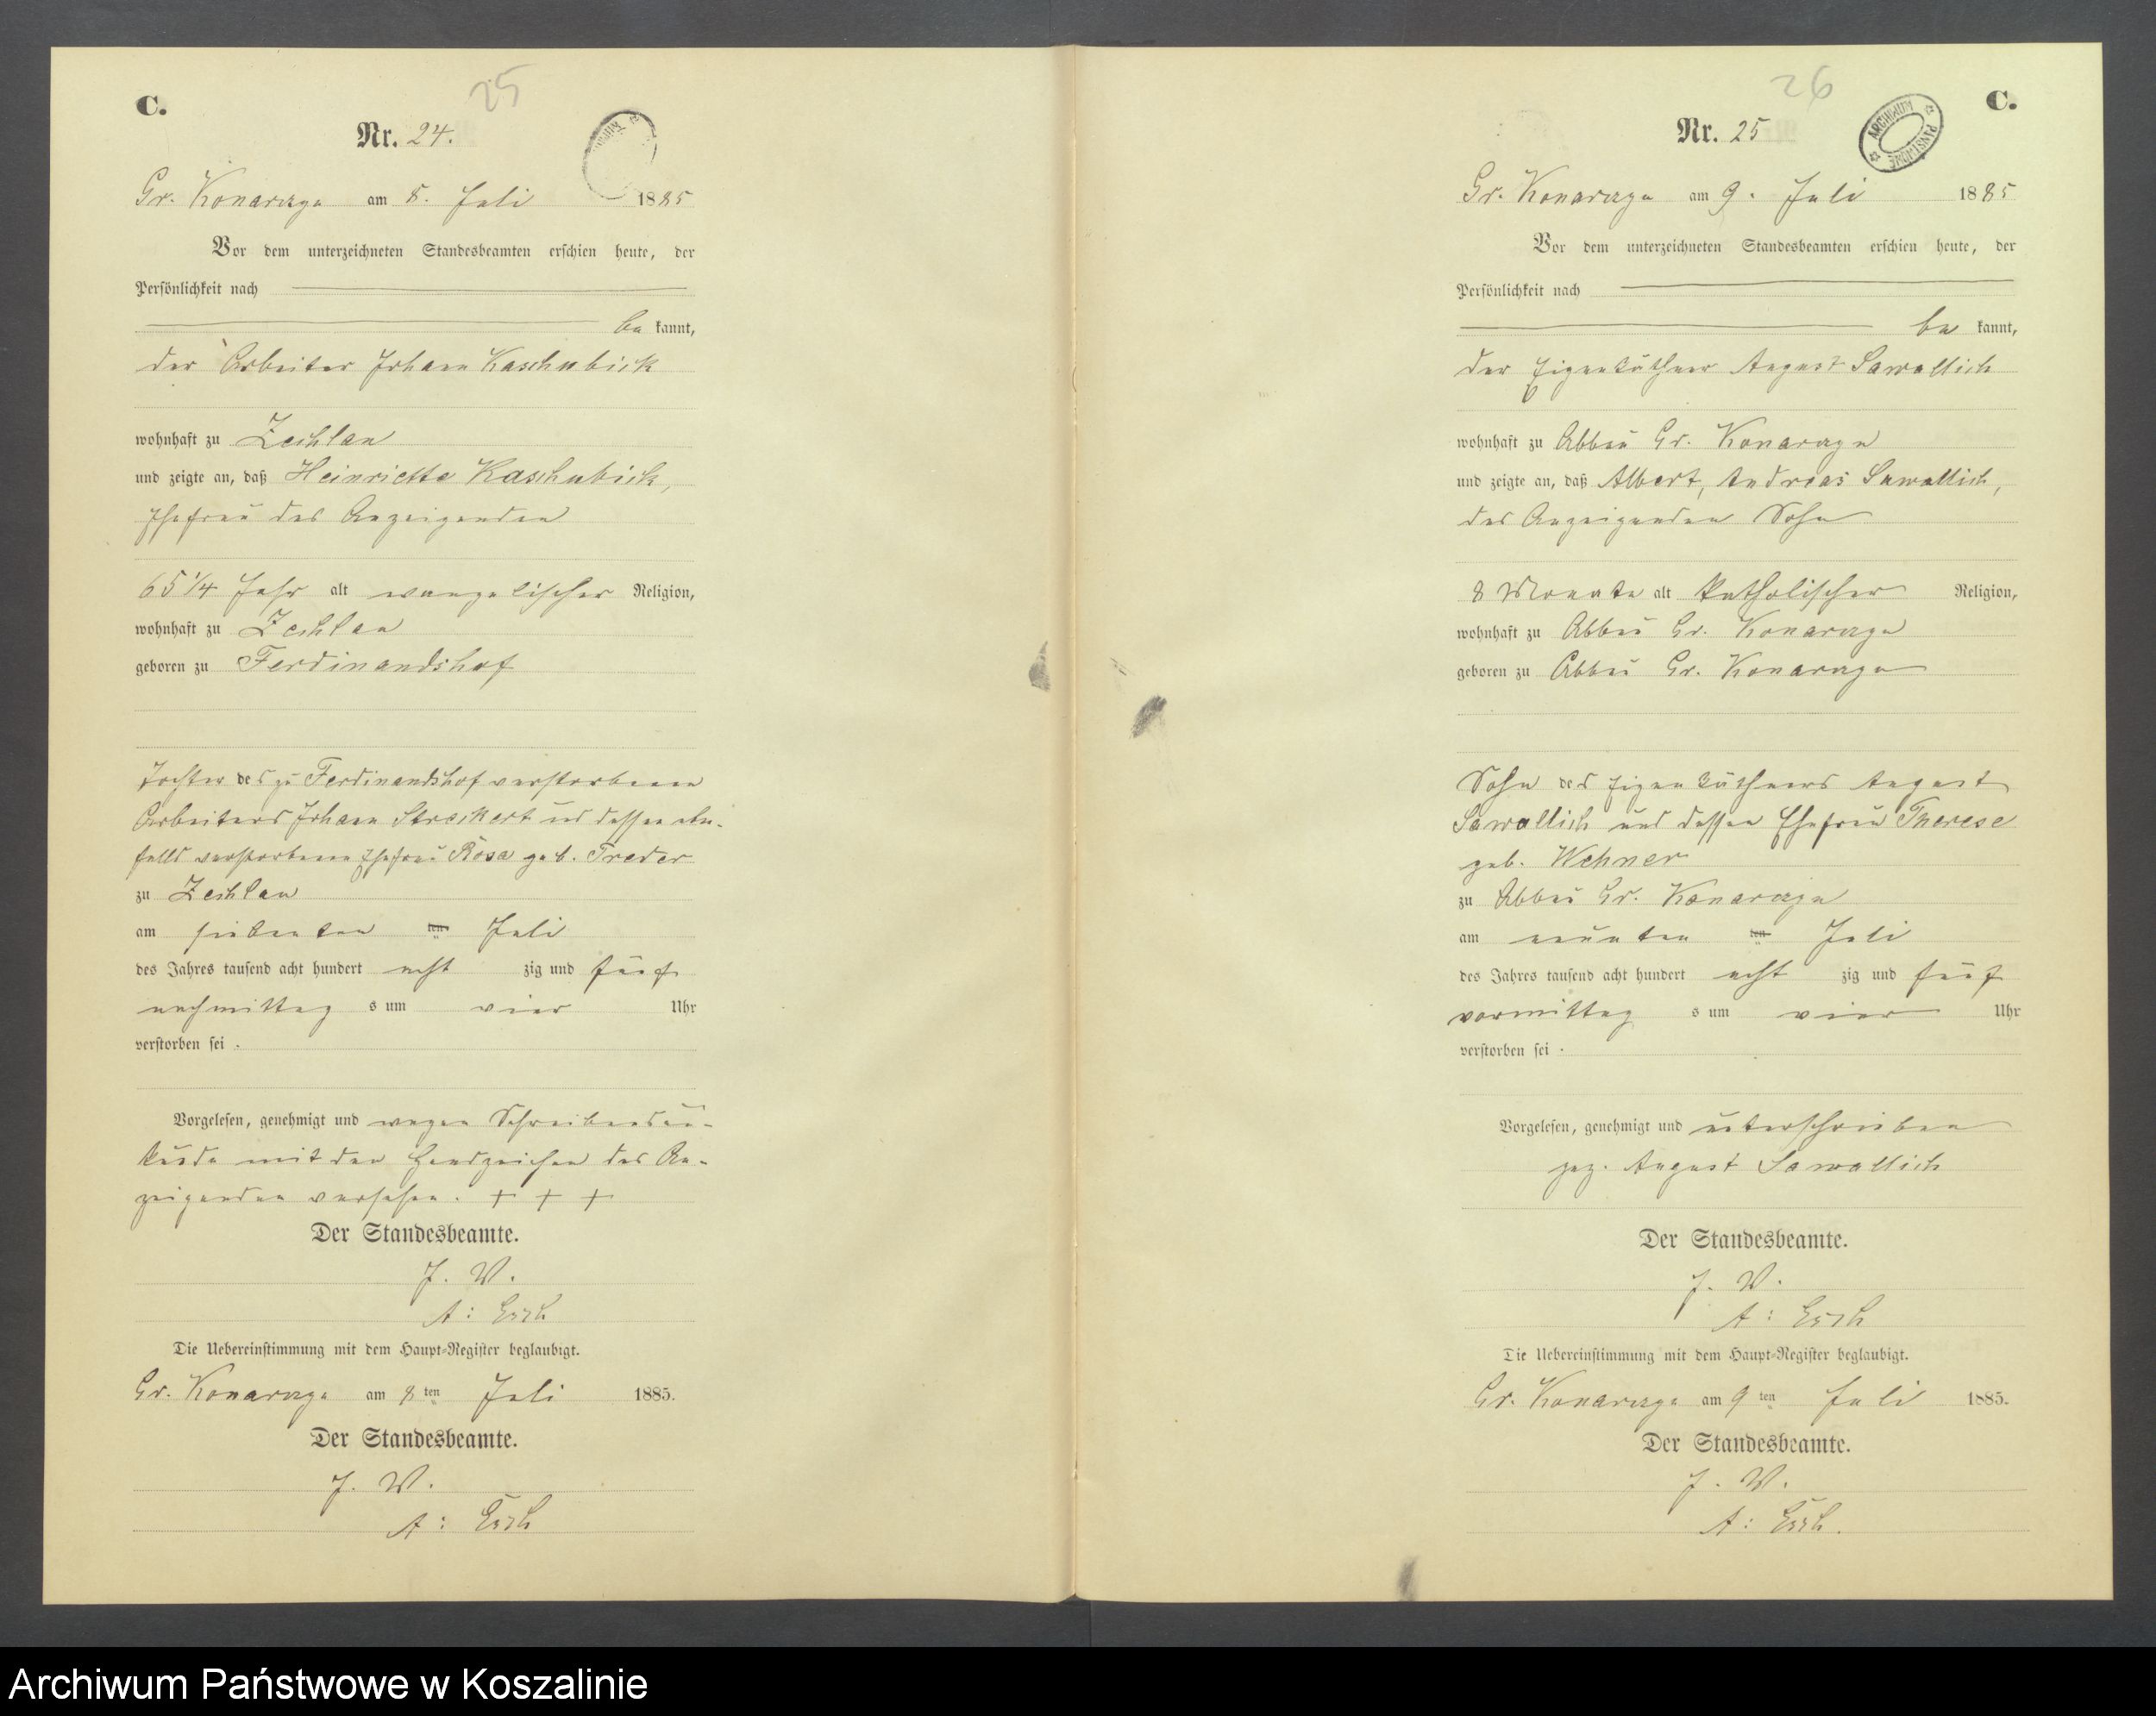 25
C.
Nr. 24.
Gr. Konarczyn am 8. Juli 1885
Vor dem unterzeichneten Standesbeamten erschien heute, der
Persönlichkeit nach
be kannt,
der Arbeiter Johann Kaschubick
wohnhaft zu Zechlau
und zeigte an, daß Heinriette Kaschubick,
Ehefrau des Anzeigenden
65 1/4 Jahr alt evangelischer Religion,
wohnhaft zu Zechlau
geboren zu Ferdinandshof
Tochter des zu Ferdinandshof verstorbenen
Arbeiters Johann Streckert und dessen eben-
falls verstorbenen Ehefrau Rosa geb. Treder
zu Zechlau
am siebenten ten Juli
des Jahres tausend acht hundert acht zig und fünf
nachmittag s um vier Uhr
verstorben sei.
Vorgelesen, genehmigt und wegen Schreibensun-
kunde mit den Handzeichen des An-
zeigenden versehen. + + +
Der Standesbeamte.
J. V.
A:
Die Uebereinstimmung mit dem Haupt-Register beglaubigt.
Gr. Konarczyn am 8 ten Juli 1885.
Der Standesbeamte.
J. V.
A:
26
C.
Nr. 25
ARCHIWUM PAŃSTWOWE
Gr. Konarczyn am 9. Juli 1885
Vor dem unterzeichneten Standesbeamten erschien heute, der
Persönlichkeit nach
be kannt,
der Eigenkäthner August Sawallich
wohnhaft zu Abbau Gr. Konarczyn
und zeigte an, daß Albert, Andreas Sawallich,
des Anzeigenden Sohn
8 Monate alt katholischer Religion,
wohnhaft zu Abbau Gr. Konarczyn
geboren zu Abbau Gr. Konarczyn
Sohn des Eigenkäthners August
Sawallich und dessen Ehefrau Therese
geb. Wehner
zu Abbau Gr. Konarczyn
am neunten ten Juli
des Jahres tausend acht hundert acht zig und fünf
vormittag s um vier Uhr
verstorben sei.
Vorgelesen, genehmigt und unterschrieben
gez. August Sawallich
Der Standesbeamte.
J. V.
A:
Die Uebereinstimmung mit dem Haupt-Register beglaubigt.
Gr. Konarczyn am 9 ten Juli 1885.
Der Standesbeamte.
J. V.
A:
Archiwum Państwowe w Koszalinie